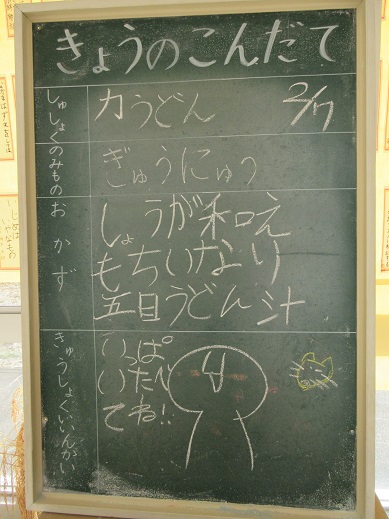 きょうのこんだて
しゅしょく
力うどん
2/7
のみもの
ぎゅうにゅう
おかず
しょうが和え
もちいなり
五目うどん汁
きゅうしょくいいんかい
いっぱ゜
いたべ
てね!!